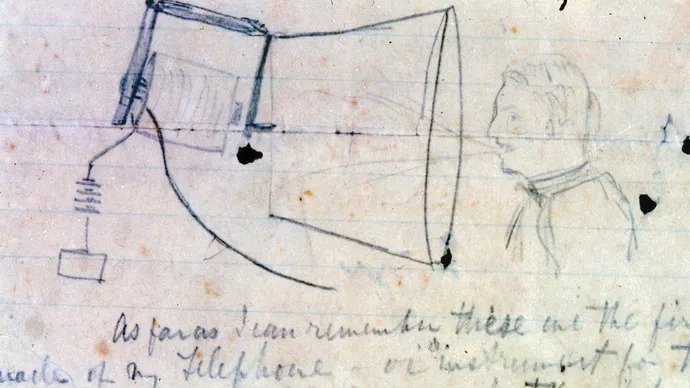 As far as I can remember these are the fir
made of my Telephone – or instrument for t